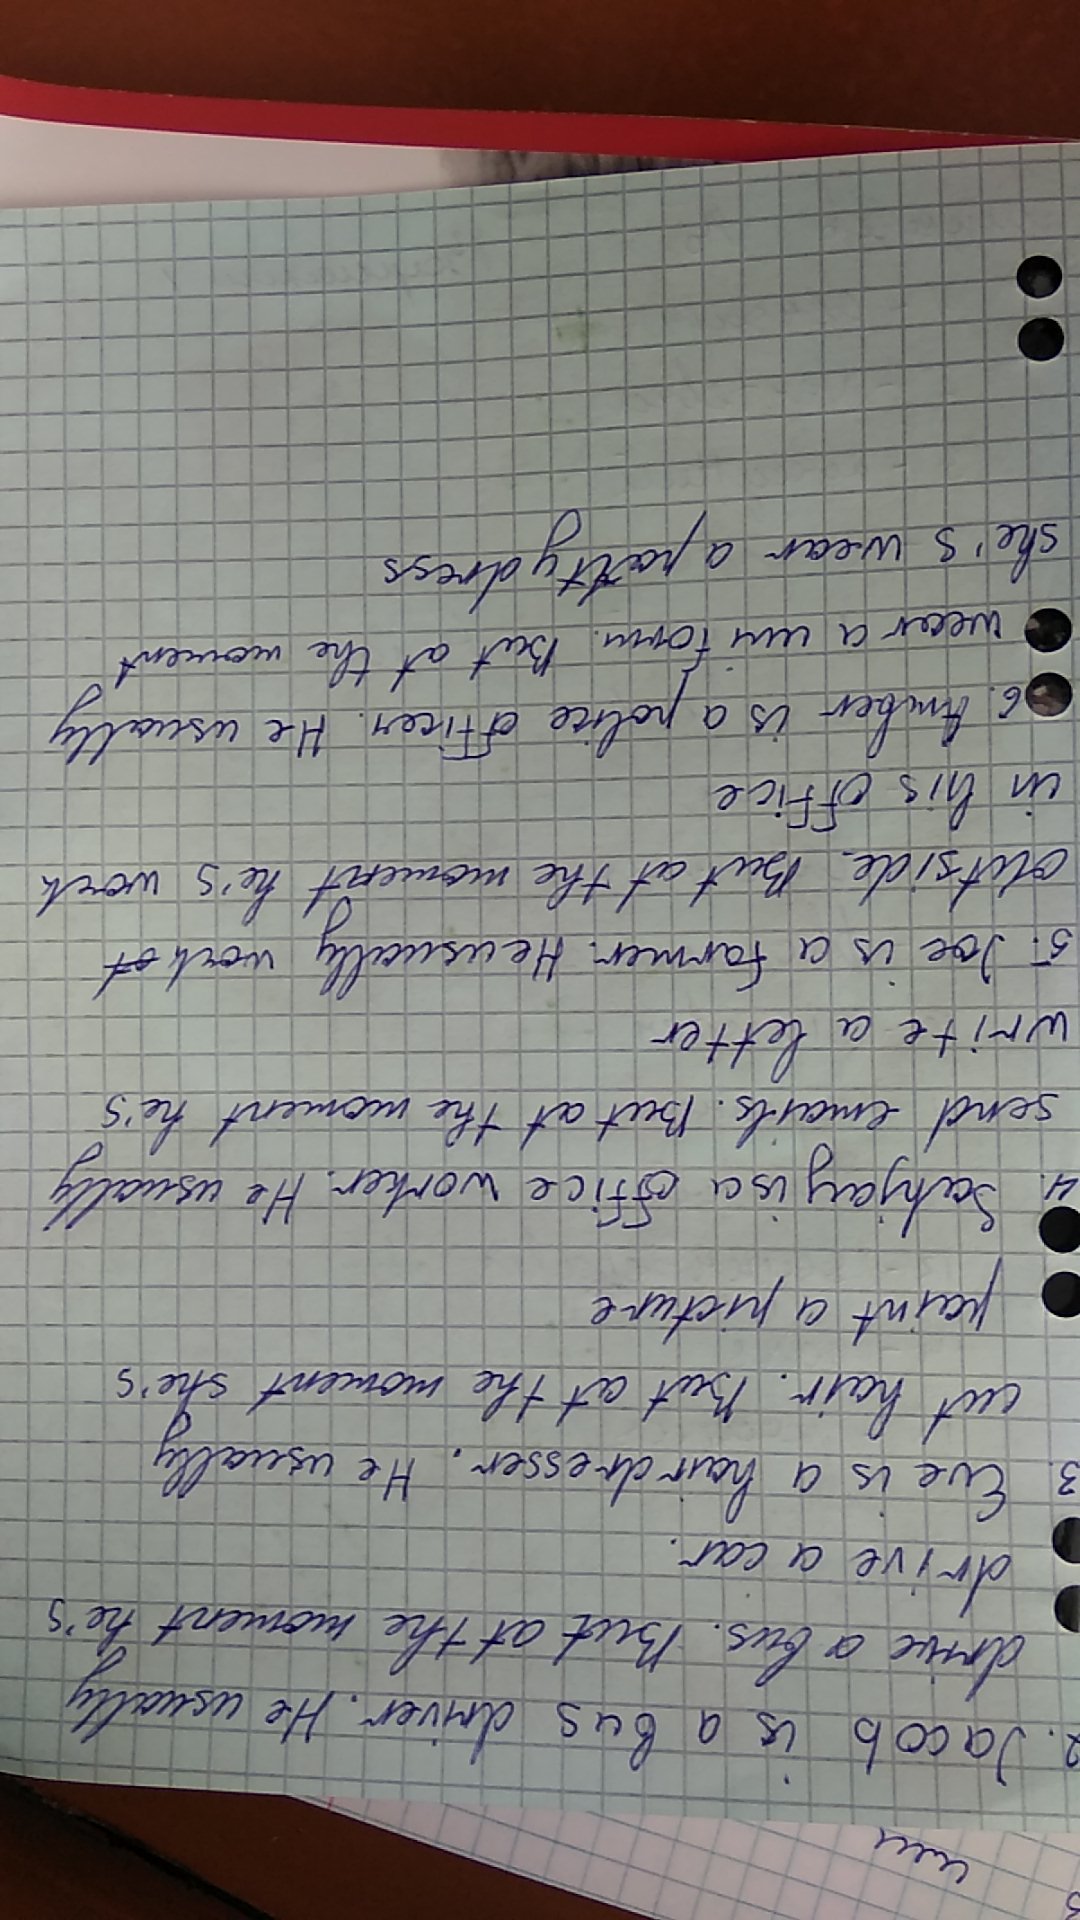 2. Jacob is a bus driver. He usually
drive a bus. But at the moment he's
drive a car.
3. Eve is a hairdresser. He usually
cut hair. But at the moment she's
paint a picture
4. Sahjay is a office worker. He usually
send emails. But at the moment he's
write a letter
5. Joe is a farmer. He usually work of
outside. But at the moment he's work
in his office
6. Amber is a police officer. He usually
wear a uniform. But at the moment
she's wear a party dress